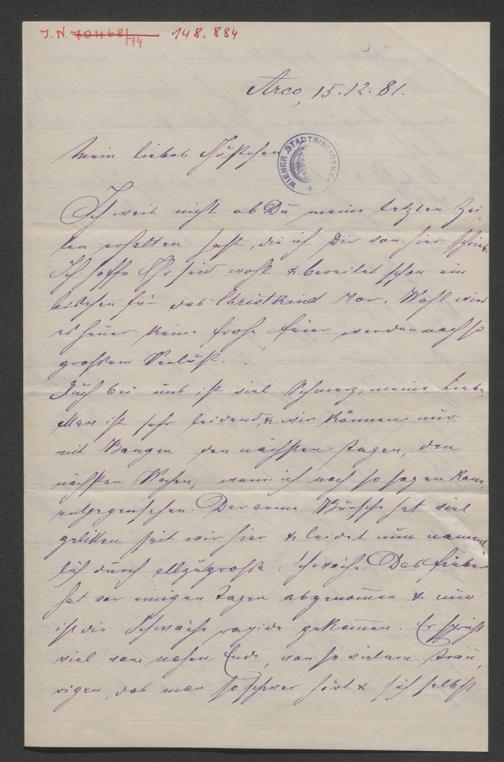 J. N. 70468/74 148.884
Arco, 15.12.81.
Mein liebes
WIENER STADTBIBLIOTHEK
Ich weiß nicht ob Du meine letzten Zei-
len erhalten hast, die ich Dir von hier schrieb.
Ich hoffe Ihr seid wohl & bereitet schon ein
bischen für das Christkind vor. Wohl wird
es heuer keine frohe Feier werden nach so
großem Verlust.
Auch bei uns ist viel Schmerz, meine Liebe.
Max ist sehr leidend, & wir können nur
mit Bangen den nächsten Tagen, den
nächsten Wochen, wenn ich noch so sagen kann,
entgegensehen. Der arme Bursche hat viel
gelitten seit wir hier & leidet nun nament-
lich durch allzugroße Schwäche. Das Fieber
hat vor einigen Tagen abgenommen & nun
ist die Schwäche rapide gekommen. Er spricht
viel vom nahen Ende, von so vielem Trau-
rigen, das man so schwer hört & sich selbst